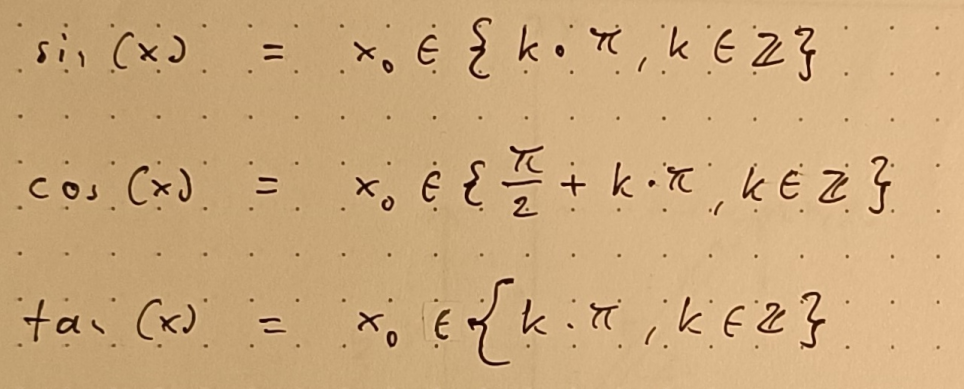 sin (x) = x₀ ∈ { k · π , k ∈ ℤ }
cos (x) = x₀ ∈ { π/2 + k · π , k ∈ ℤ }
tan (x) = x₀ ∈ { k · π , k ∈ ℤ }